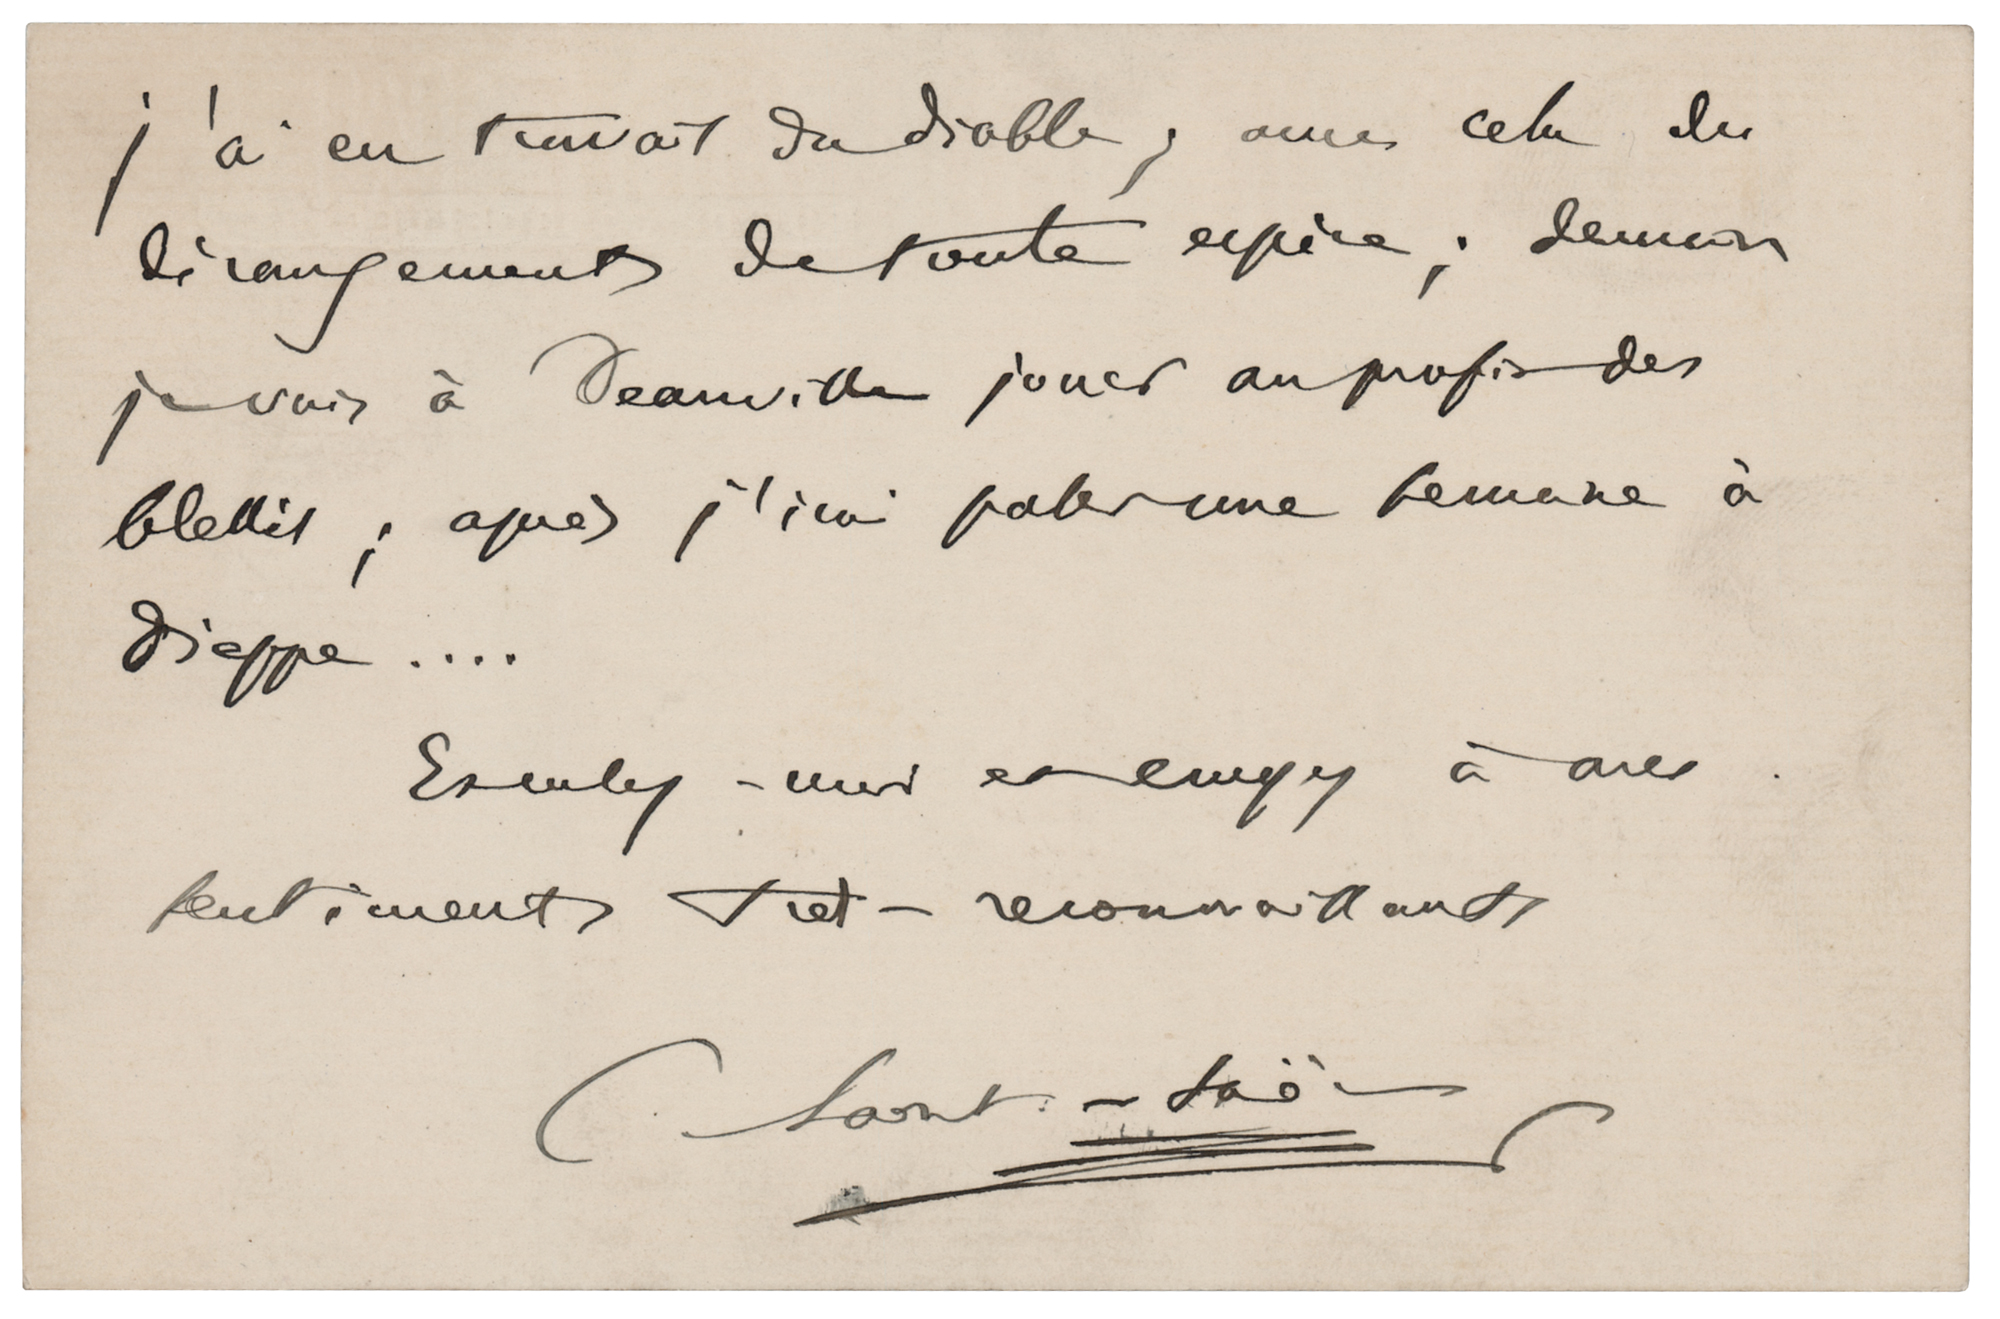 j'ai eu travail du diable, avec cela des
dérangements de toute espèce ; demain
je vais à Deauville jouer au profit des
blessés ; après j'irai passer une semaine à
Dieppe ....
Excusez-moi et croyez à mes
sentiments très-reconnaissants
C. Saint-Saëns